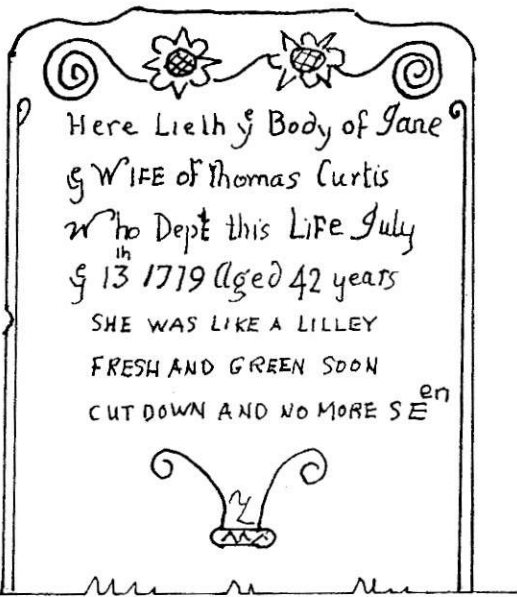 Here Lieth yͤ Body of Jane
yͤ WIFE of Thomas Curtis
Who Dept this LiFe July
yͤ 13th 1779 Aged 42 years
SHE WAS LIKE A LILLEY
FRESH AND GREEN SOON
CUT DOWN AND NO MORE SEen